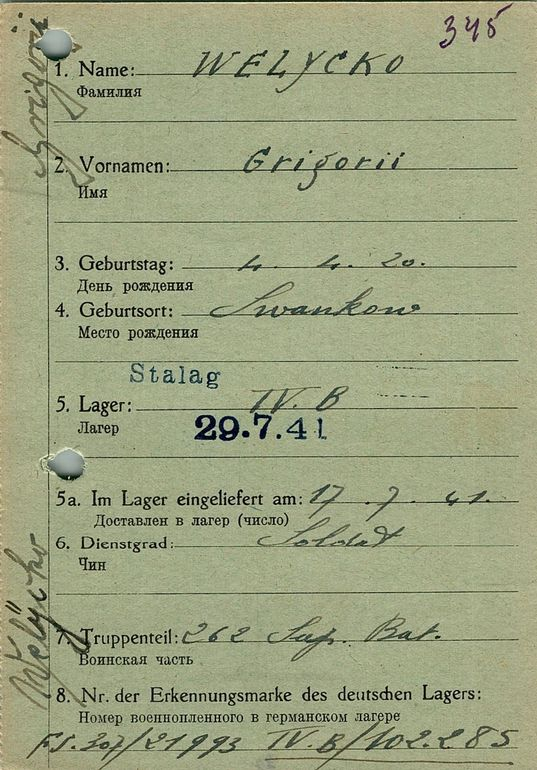 345
1. Name: WELYCKO
Фамилия
2. Vornamen: Grigorii
Имя
3. Geburtstag: 4. 4. 20.
День рождения
4. Geburtsort: Iwankow
Место рождения
Stalag
5. Lager: IV. B
Лагерь
29.7.41
5a. Im Lager eingeliefert am: 17. 7. 41.
Доставлен в лагерь (число)
6. Dienstgrad: Soldat
Чин
7. Truppenteil: 262 Sap. Bat.
Воинская часть
8. Nr. der Erkennungsmarke des deutschen Lagers:
Номер военнопленного в германском лагере
F.S. 307/21993 IV. B/102.285
Welÿcko